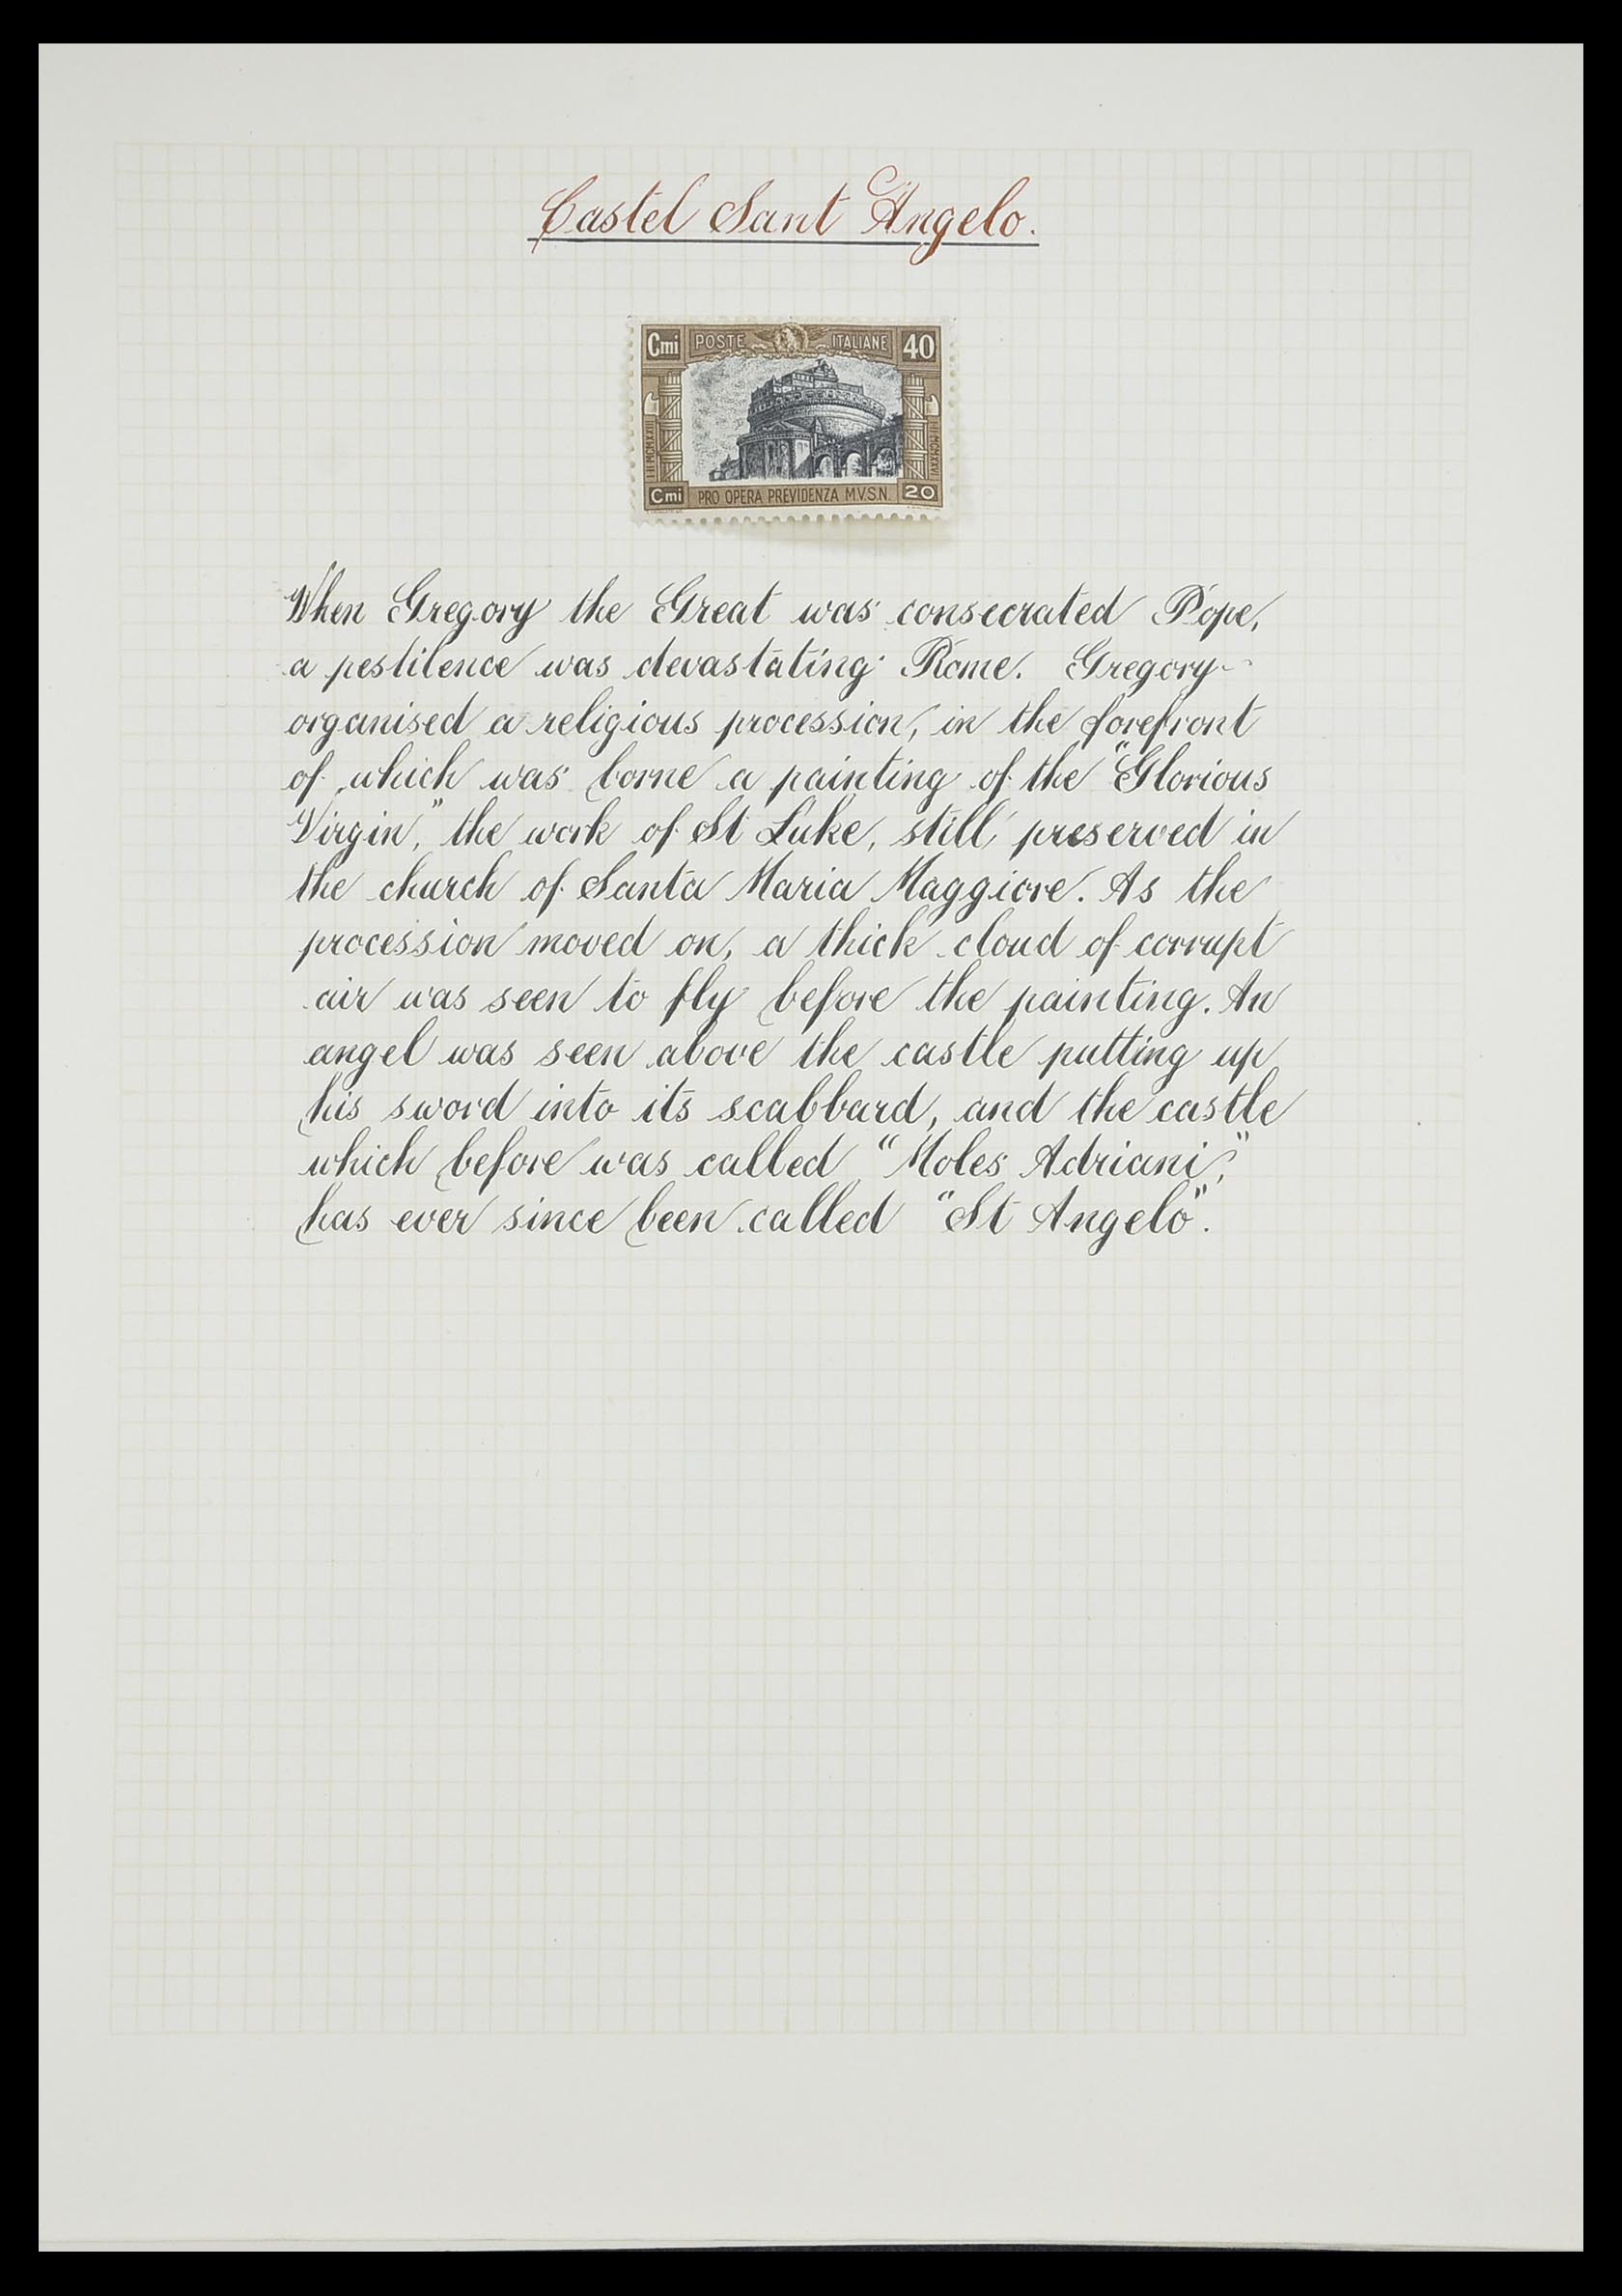 Castel Sant Angelo.
Cmi POSTE ITALIANE 40
Cmi PRO OPERA PREVIDENZA M.V.S.N. 20
When Gregory the Great was consecrated Pope,
a pestilence was devastating Rome. Gregory
organised a religious procession, in the forefront
of which was borne a painting of the "Glorious
Virgin," the work of St Luke, still preserved in
the church of Santa Maria Maggiore. As the
procession moved on, a thick cloud of corrupt
air was seen to fly before the painting. An
angel was seen above the castle putting up
his sword into its scabbard, and the castle
which before was called "Moles Adriani,"
has ever since been called "St Angelo".